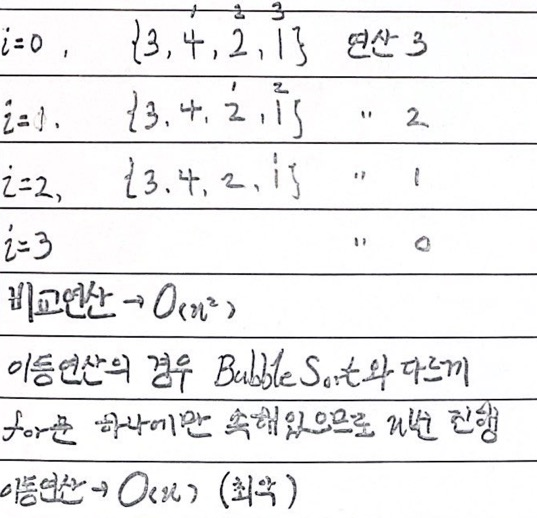 1 2 3
i=0, {3, 4, 2, 1} 연산 3
1 2
i=1. {3. 4. 2, 1} " 2
1
i=2, {3. 4. 2, 1} " 1
i=3 " 0
비교연산 → O(n²)
이동연산의 경우 Bubble Sort와 다르게
for문 하나에만 속해있으므로 n번 진행
이동연산 → O(n) (최악)